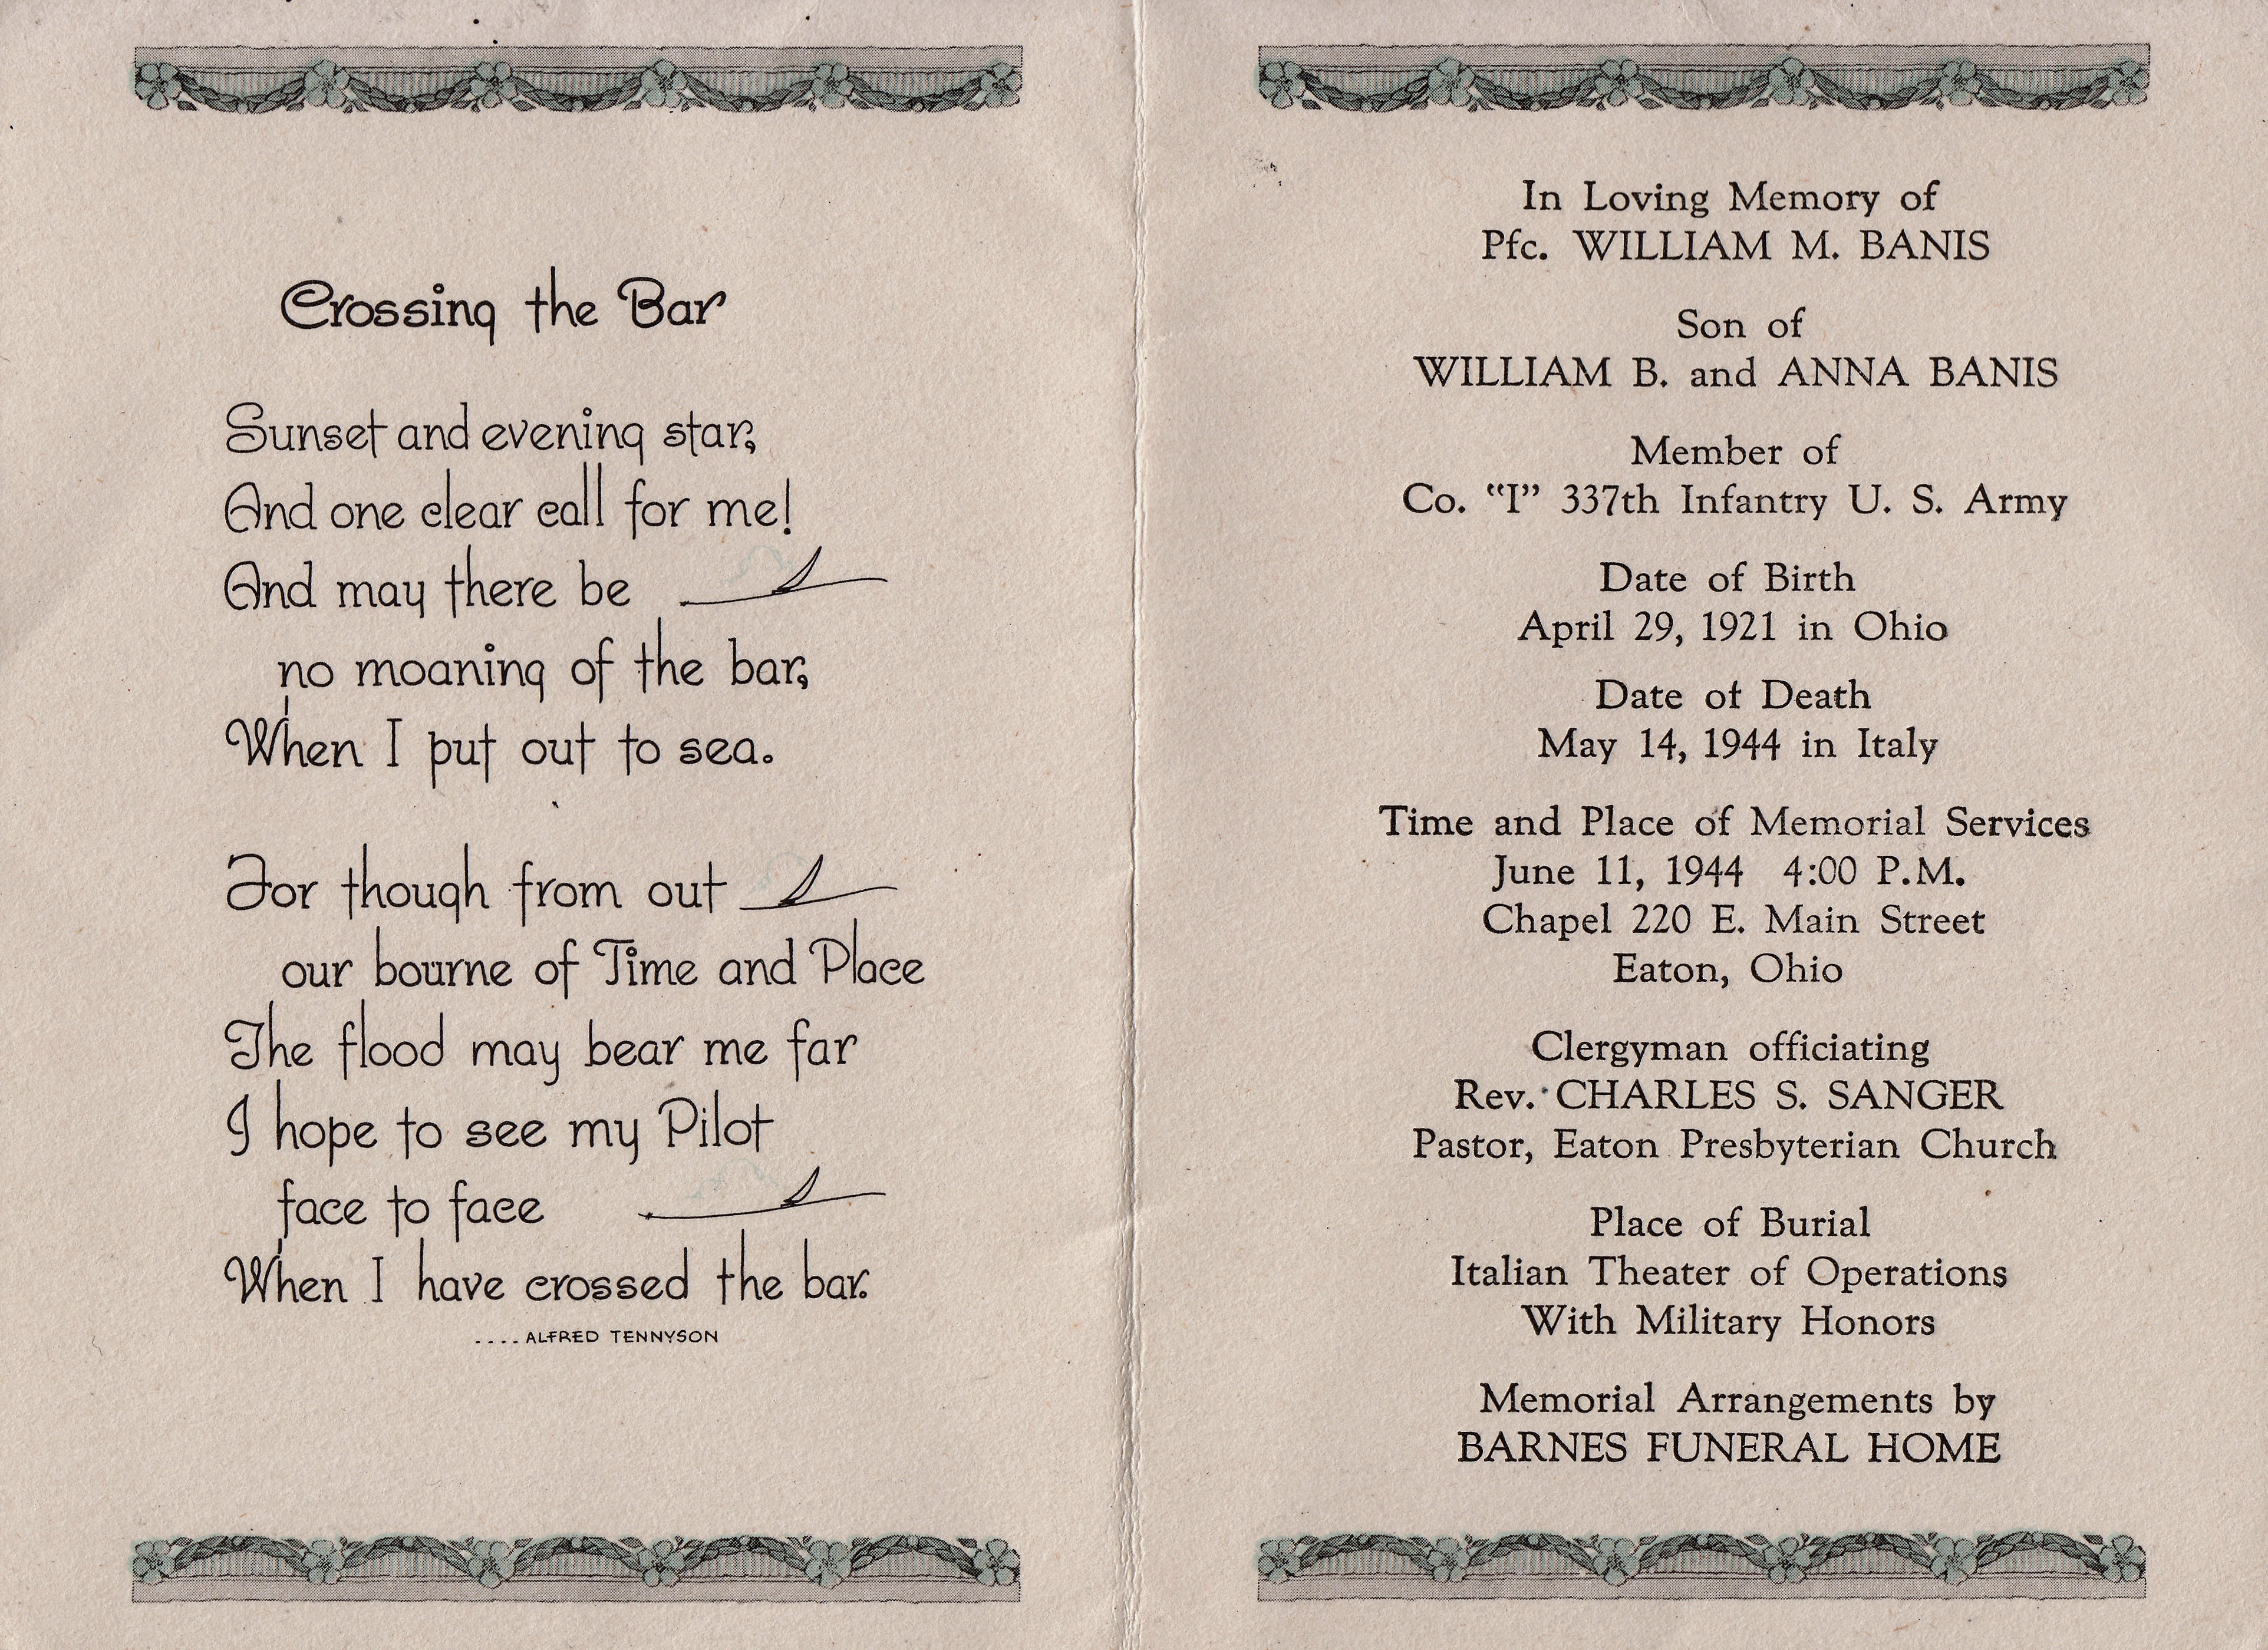 Crossing the Bar
Sunset and evening star,
And one clear call for me!
And may there be
no moaning of the bar,
When I put out to sea.
For though from out
our bourne of Time and Place
The flood may bear me far
I hope to see my Pilot
face to face
When I have crossed the bar.
....ALFRED TENNYSON
In Loving Memory of
Pfc. WILLIAM M. BANIS
Son of
WILLIAM B. and ANNA BANIS
Member of
Co. "I" 337th Infantry U. S. Army
Date of Birth
April 29, 1921 in Ohio
Date of Death
May 14, 1944 in Italy
Time and Place of Memorial Services
June 11, 1944 4:00 P.M.
Chapel 220 E. Main Street
Eaton, Ohio
Clergyman officiating
Rev. CHARLES S. SANGER
Pastor, Eaton Presbyterian Church
Place of Burial
Italian Theater of Operations
With Military Honors
Memorial Arrangements by
BARNES FUNERAL HOME